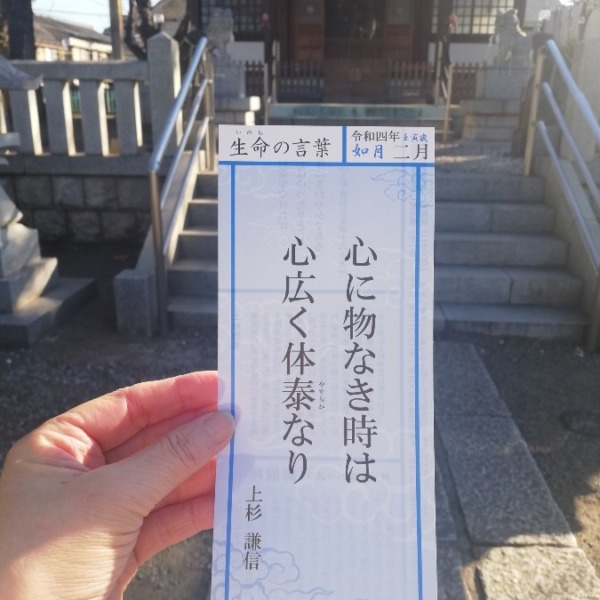 生命の言葉
いのち
令和四年 壬寅歳
如月 二月
心に物なき時は
心広く体泰なり
やすらか
上杉 謙信